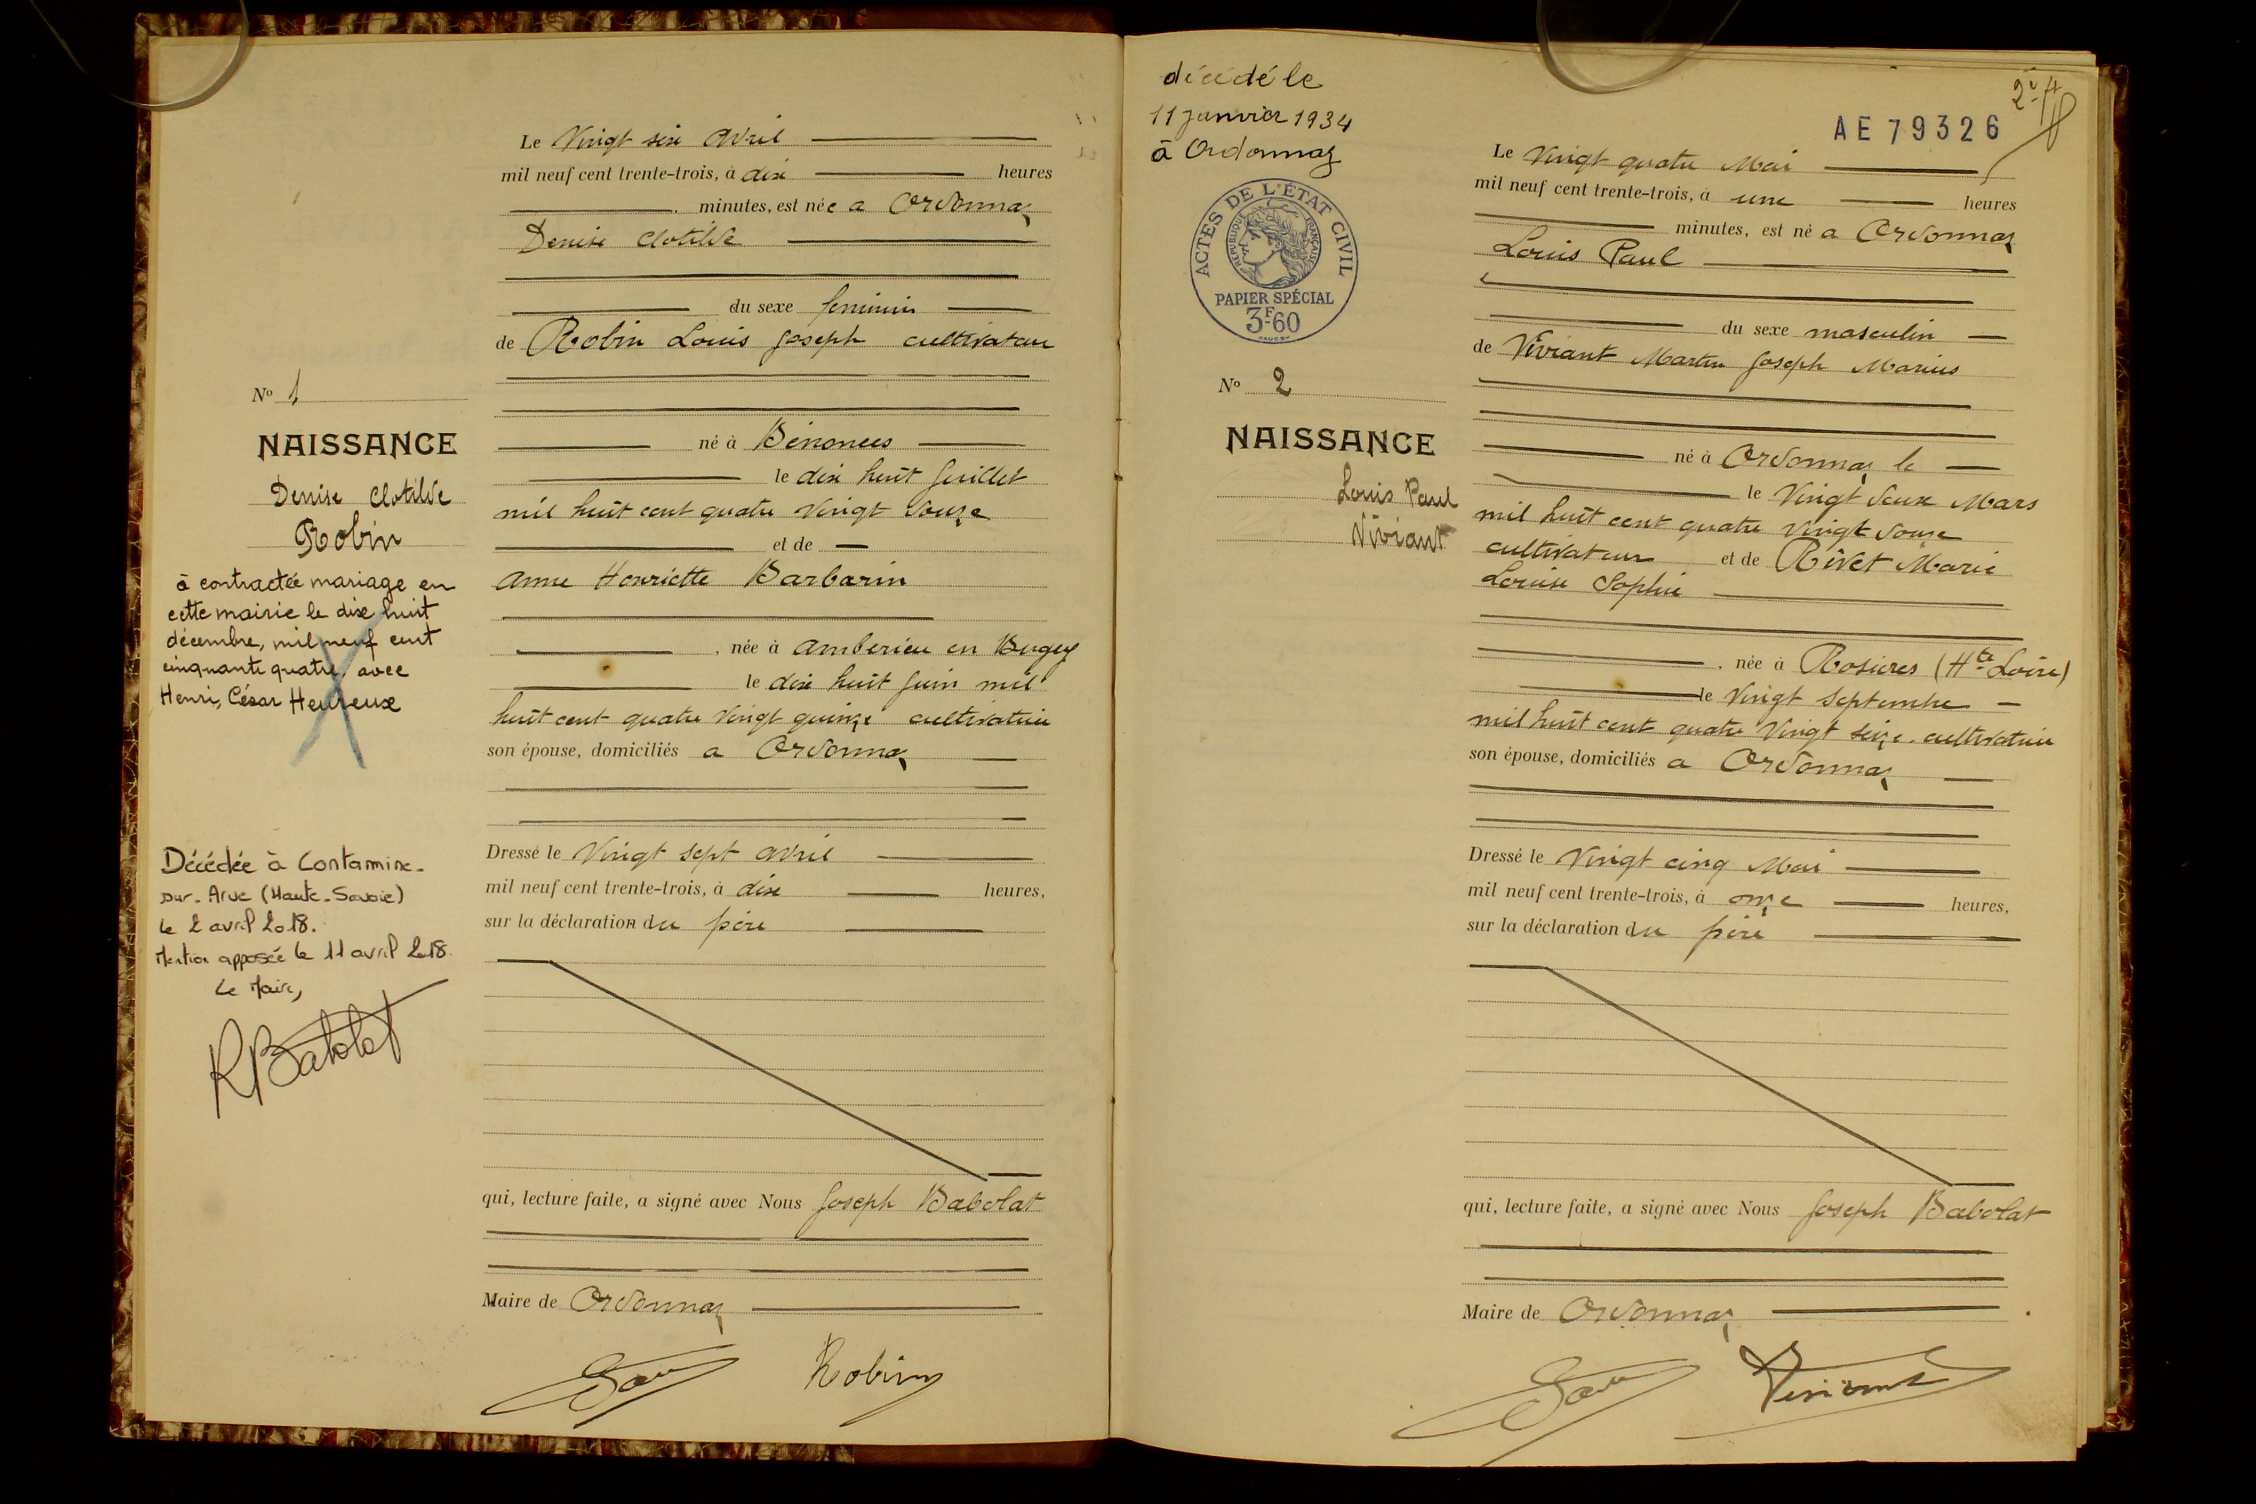 Le Vingt six Avril
mil neuf cent trente-trois, à dix heures
minutes, est née a Ordonnaz
Denise Clotilde
du sexe feminin
de Robin Louis Joseph cultivateur
né à Bénonces
le dix huit Juillet
mil huit cent quatre Vingt douze
et de
Anne Henriette Barbarin
, née à Amberieu en Bugey
le dix huit Juin mil
huit cent quatre Vingt quinze cultivatrice
son épouse, domiciliés a Ordonnaz
Dressé le Vingt sept avril
mil neuf cent trente-trois, à dix heures,
sur la déclaration du père
qui, lecture faite, a signé avec Nous Joseph Babolat
Maire de Ordonnaz
Robin
No 1
NAISSANCE
Denise Clotilde
Robin
à contractée mariage en
cette mairie le dix huit
décembre, mil neuf cent
cinquante quatre, avec
Henri, César Heureux
Décédée à Contamine-
sur-Arve (Haute-Savoie)
le 2 avril 2018.
Mention apposée le 11 avril 2018.
Le Maire,
RBabolat
décédé le
11 Janvier 1934
à Ordonnaz
ACTES DE L'ÉTAT CIVIL
RÉPUBLIQUE FRANÇAISE
PAPIER SPÉCIAL
3F-60
No 2
NAISSANCE
Louis Paul
Viviant
AE 79326
Le Vingt quatre Mai
mil neuf cent trente-trois, à une heures
minutes, est né a Ordonnaz
Louis Paul
du sexe masculin
de Viviant Martin Joseph Marius
né à Ordonnaz le
le Vingt deux Mars
mil huit cent quatre Vingt douze
cultivateur et de Rivet Marie
Louise Sophie
, née à Rosieres (Hte Loire)
le Vingt Septembre
mil huit cent quatre Vingt seize cultivatrice
son épouse, domiciliés a Ordonnaz
Dressé le Vingt cinq Mai
mil neuf cent trente-trois, à onze heures,
sur la déclaration du père
qui, lecture faite, a signé avec Nous Joseph Babolat
Maire de Ordonnaz
Viviant